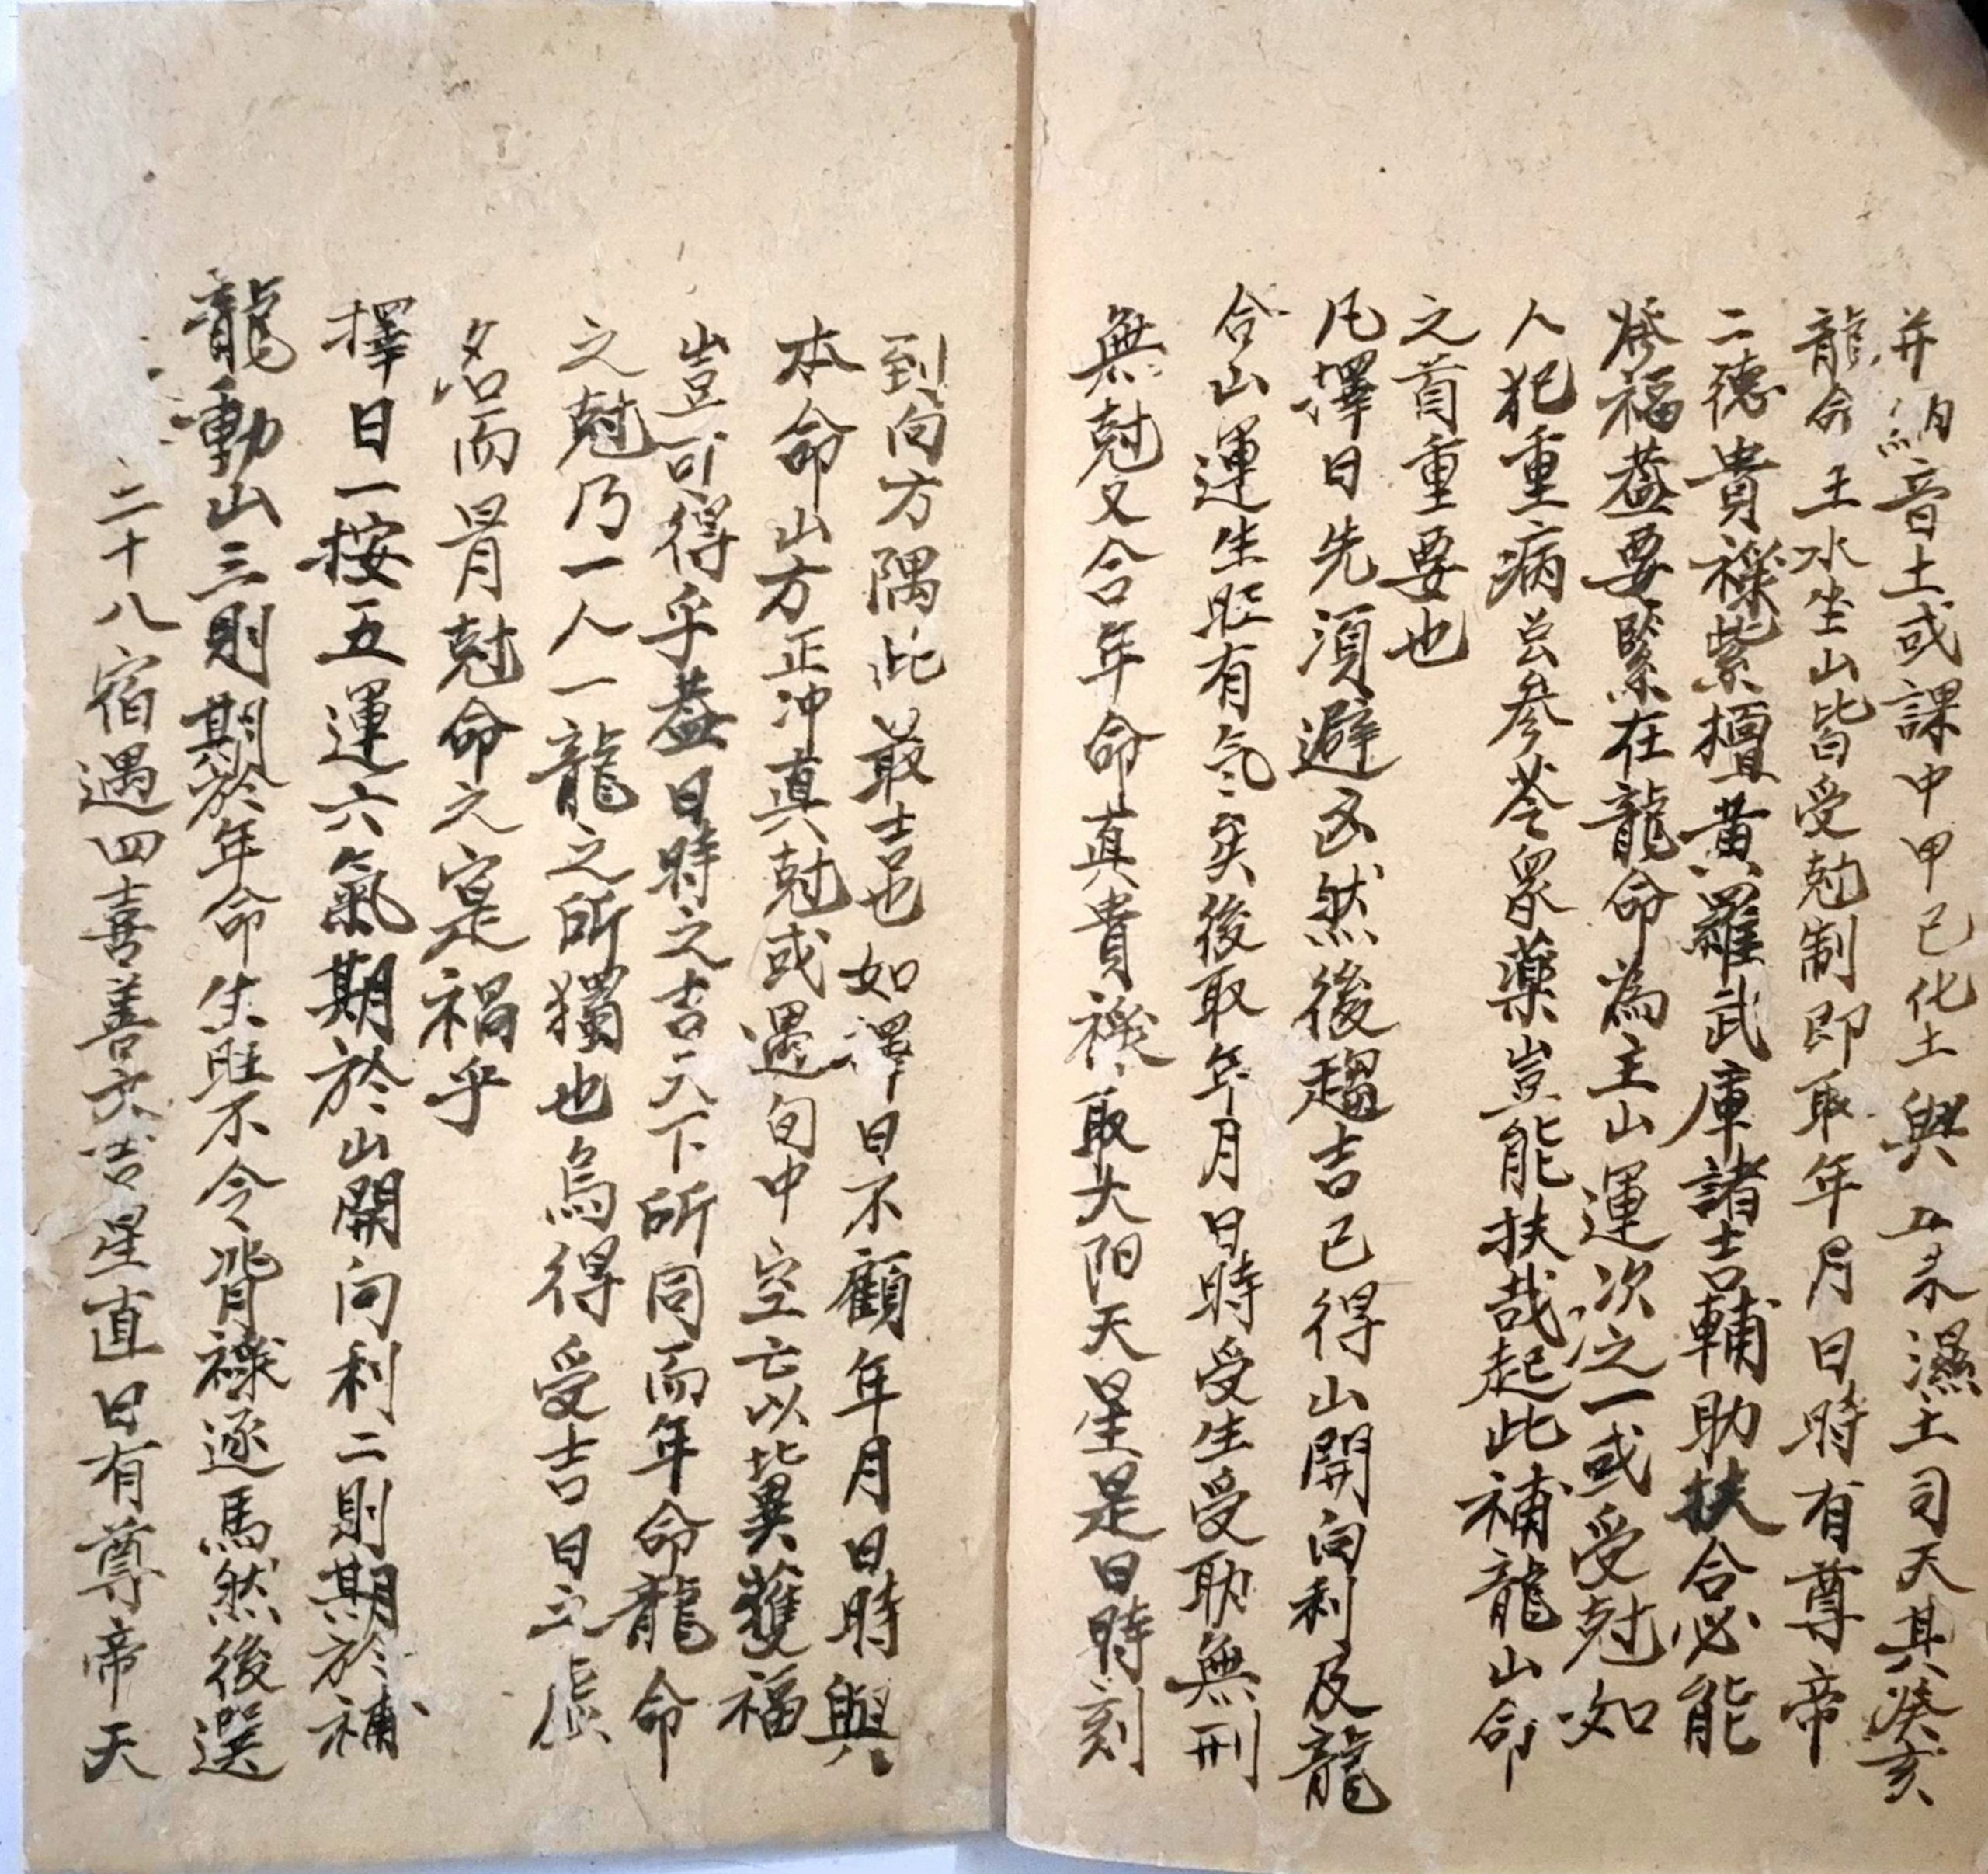 并納音土或課中甲己化土與丑未濕土司天其癸亥
龍命主水坐山皆受尅制即取年月日時有尊帝
二德貴祿紫檀黄羅武庫諸吉輔助扶合必能
發福葢要緊在龍命為主山運次之一或受尅如
人犯重病㕕參苓眾藥豈能扶哉起此補龍山命
之首重要也
凡擇日先須避凶然後趨吉已得山開向利及龍
合山運生旺有气矣後取年月日時受生受助無刑
無尅又合年命真貴祿取太阳天星是日時刻
到向方隅此最吉也如擇日不顧年月日時與
本命山方正冲真尅或遇旬中空亡以此兾獲福
豈可得乎葢日時之吉天下所同而年命龍命
之尅乃一人一龍之所獨也烏得受吉日之虛
名而冐尅命之寔禍乎
擇日一按五運六氣期於山開向利二則期於補
龍動山三則期於年命生旺不令背祿逐馬然後選
二十八宿遇四喜善六吉星直日有尊帝天